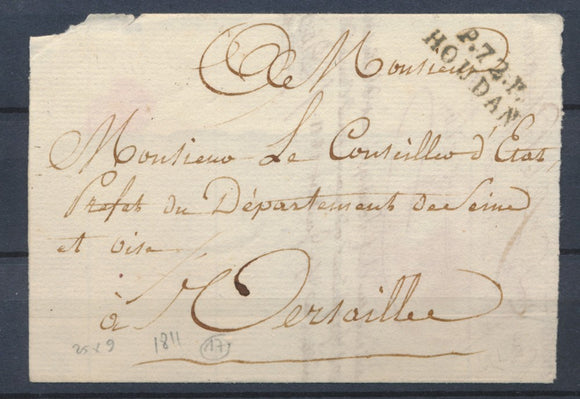 P.72.P.
HOUDAN
A Monsieur
Monsieur Le Conseiller d'Etat,
Prefet du Département de Seine
et oise
à Versailles
25x9 1811 17